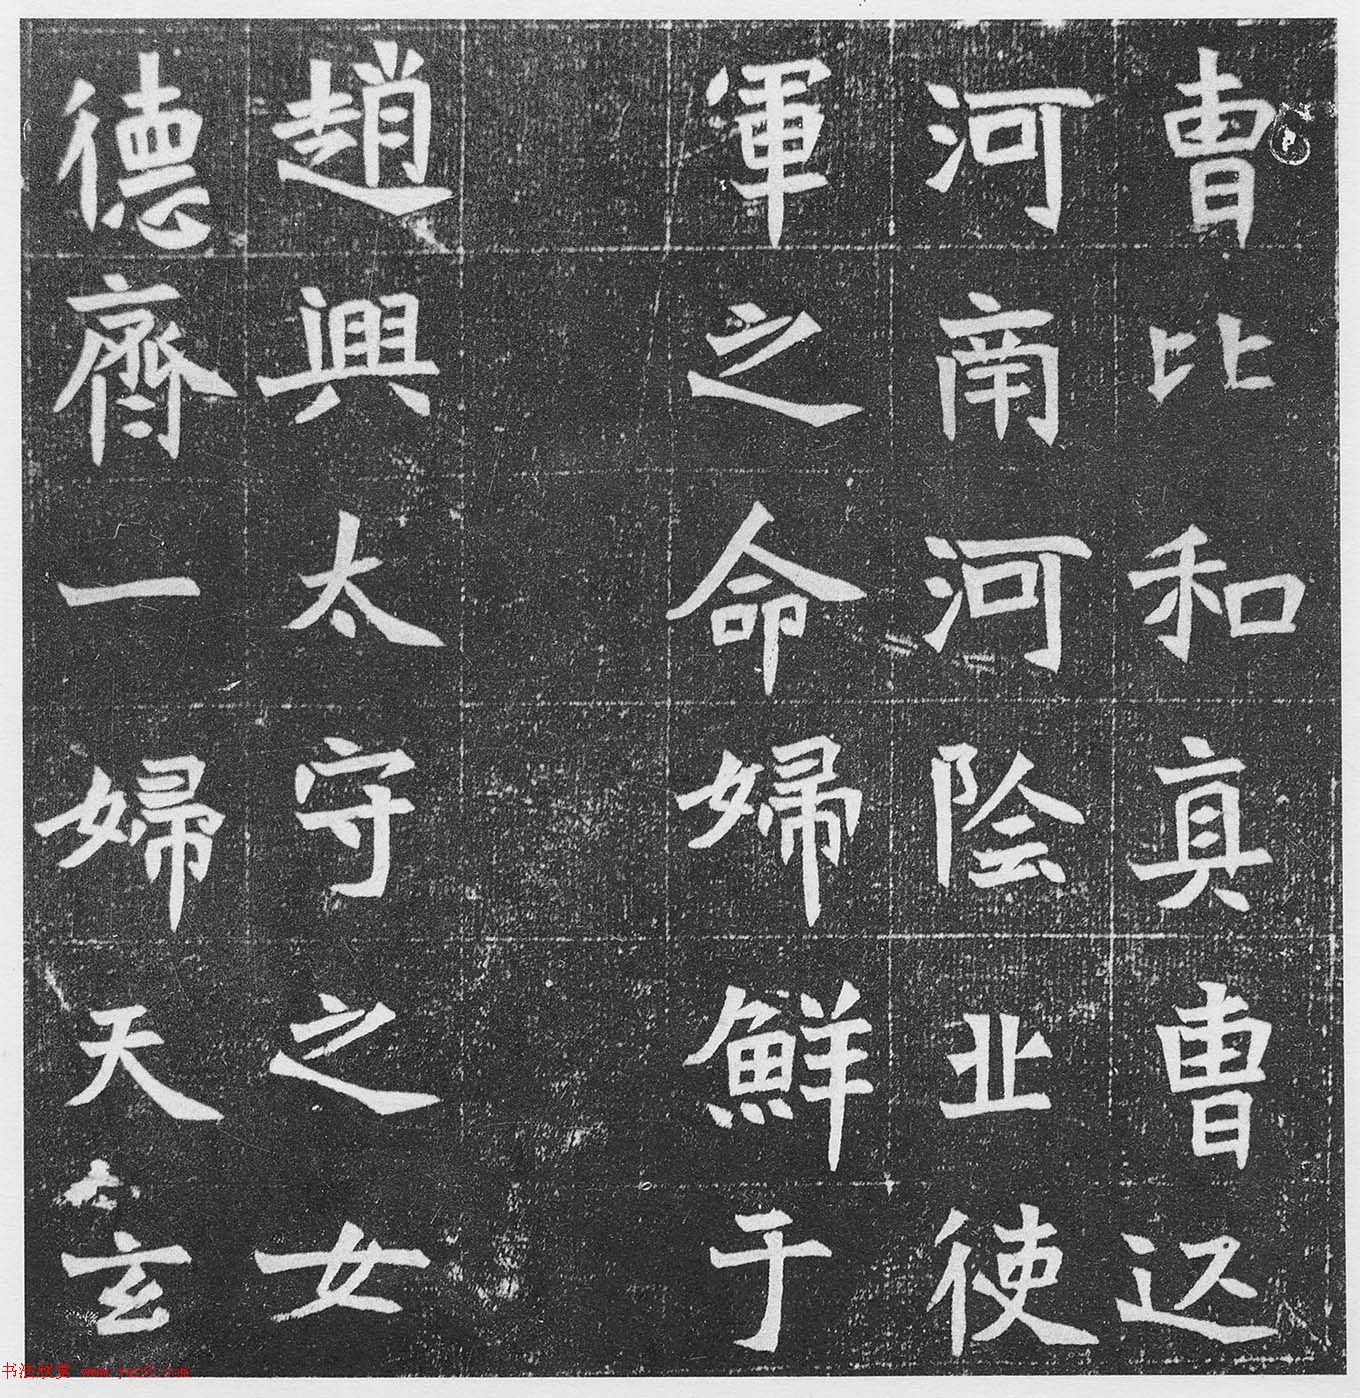 曺比和真曺
河南河陰北使
軍之命婦鮮于
趙興太守之女
德齊一婦天玄
书法欣赏 www.yac8.com